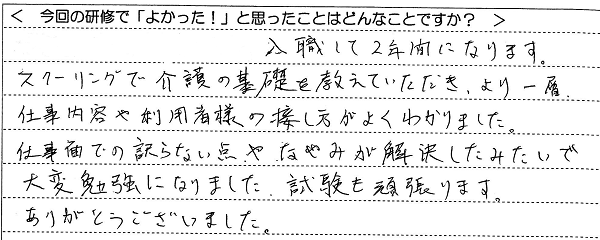 < 今回の研修で「よかった!」と思ったことはどんなことですか? >
入職して2年間になります。
スクーリングで介護の基礎を教えていただき、より一層、
仕事内容や利用者様の接し方がよくわかりました。
仕事面での訳らない点やなやみが解決したみたいで
大変勉強になりました、試験も頑張ります。
ありがとうございました。